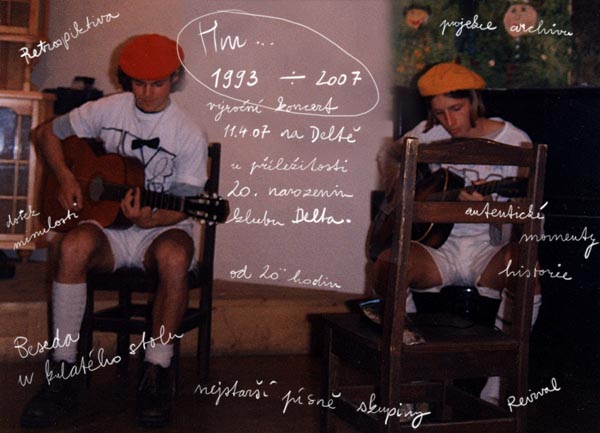 Retrospektiva
projekce archivu
Hm...
1993 ÷ 2007
výroční koncert
11.4.07 na Deltě
u příležitosti
20. narozenin
klubu Delta.
dotek
minulosti
autentické
momenty
historie
od 20°° hodin
Beseda
u kulatého stolu
nejstarší písně skupiny
Revival